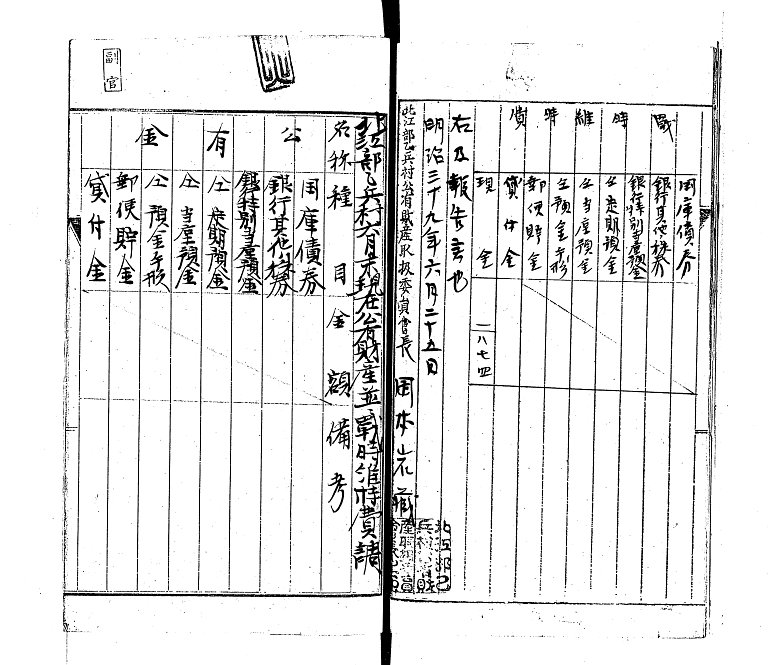 戰時維持費
国庫債券
銀行其他株券
銀行特別当座預金
仝定期預金
仝当座預金
仝預金手形
郵便貯金
貸付金
現金 一八七四
右及報告候也
明治三十九年六月二十五日
北江部乙兵村公有財産取扱委員會長 岡本岩蔵
北江部乙兵村六月末現在公有財産並戰時維持費調
名称種目 金額 備考
公有金
国庫債券
銀行其他株券
銀行特別当座預金
仝定期預金
仝当座預金
仝預金手形
郵便貯金
貸付金
副官